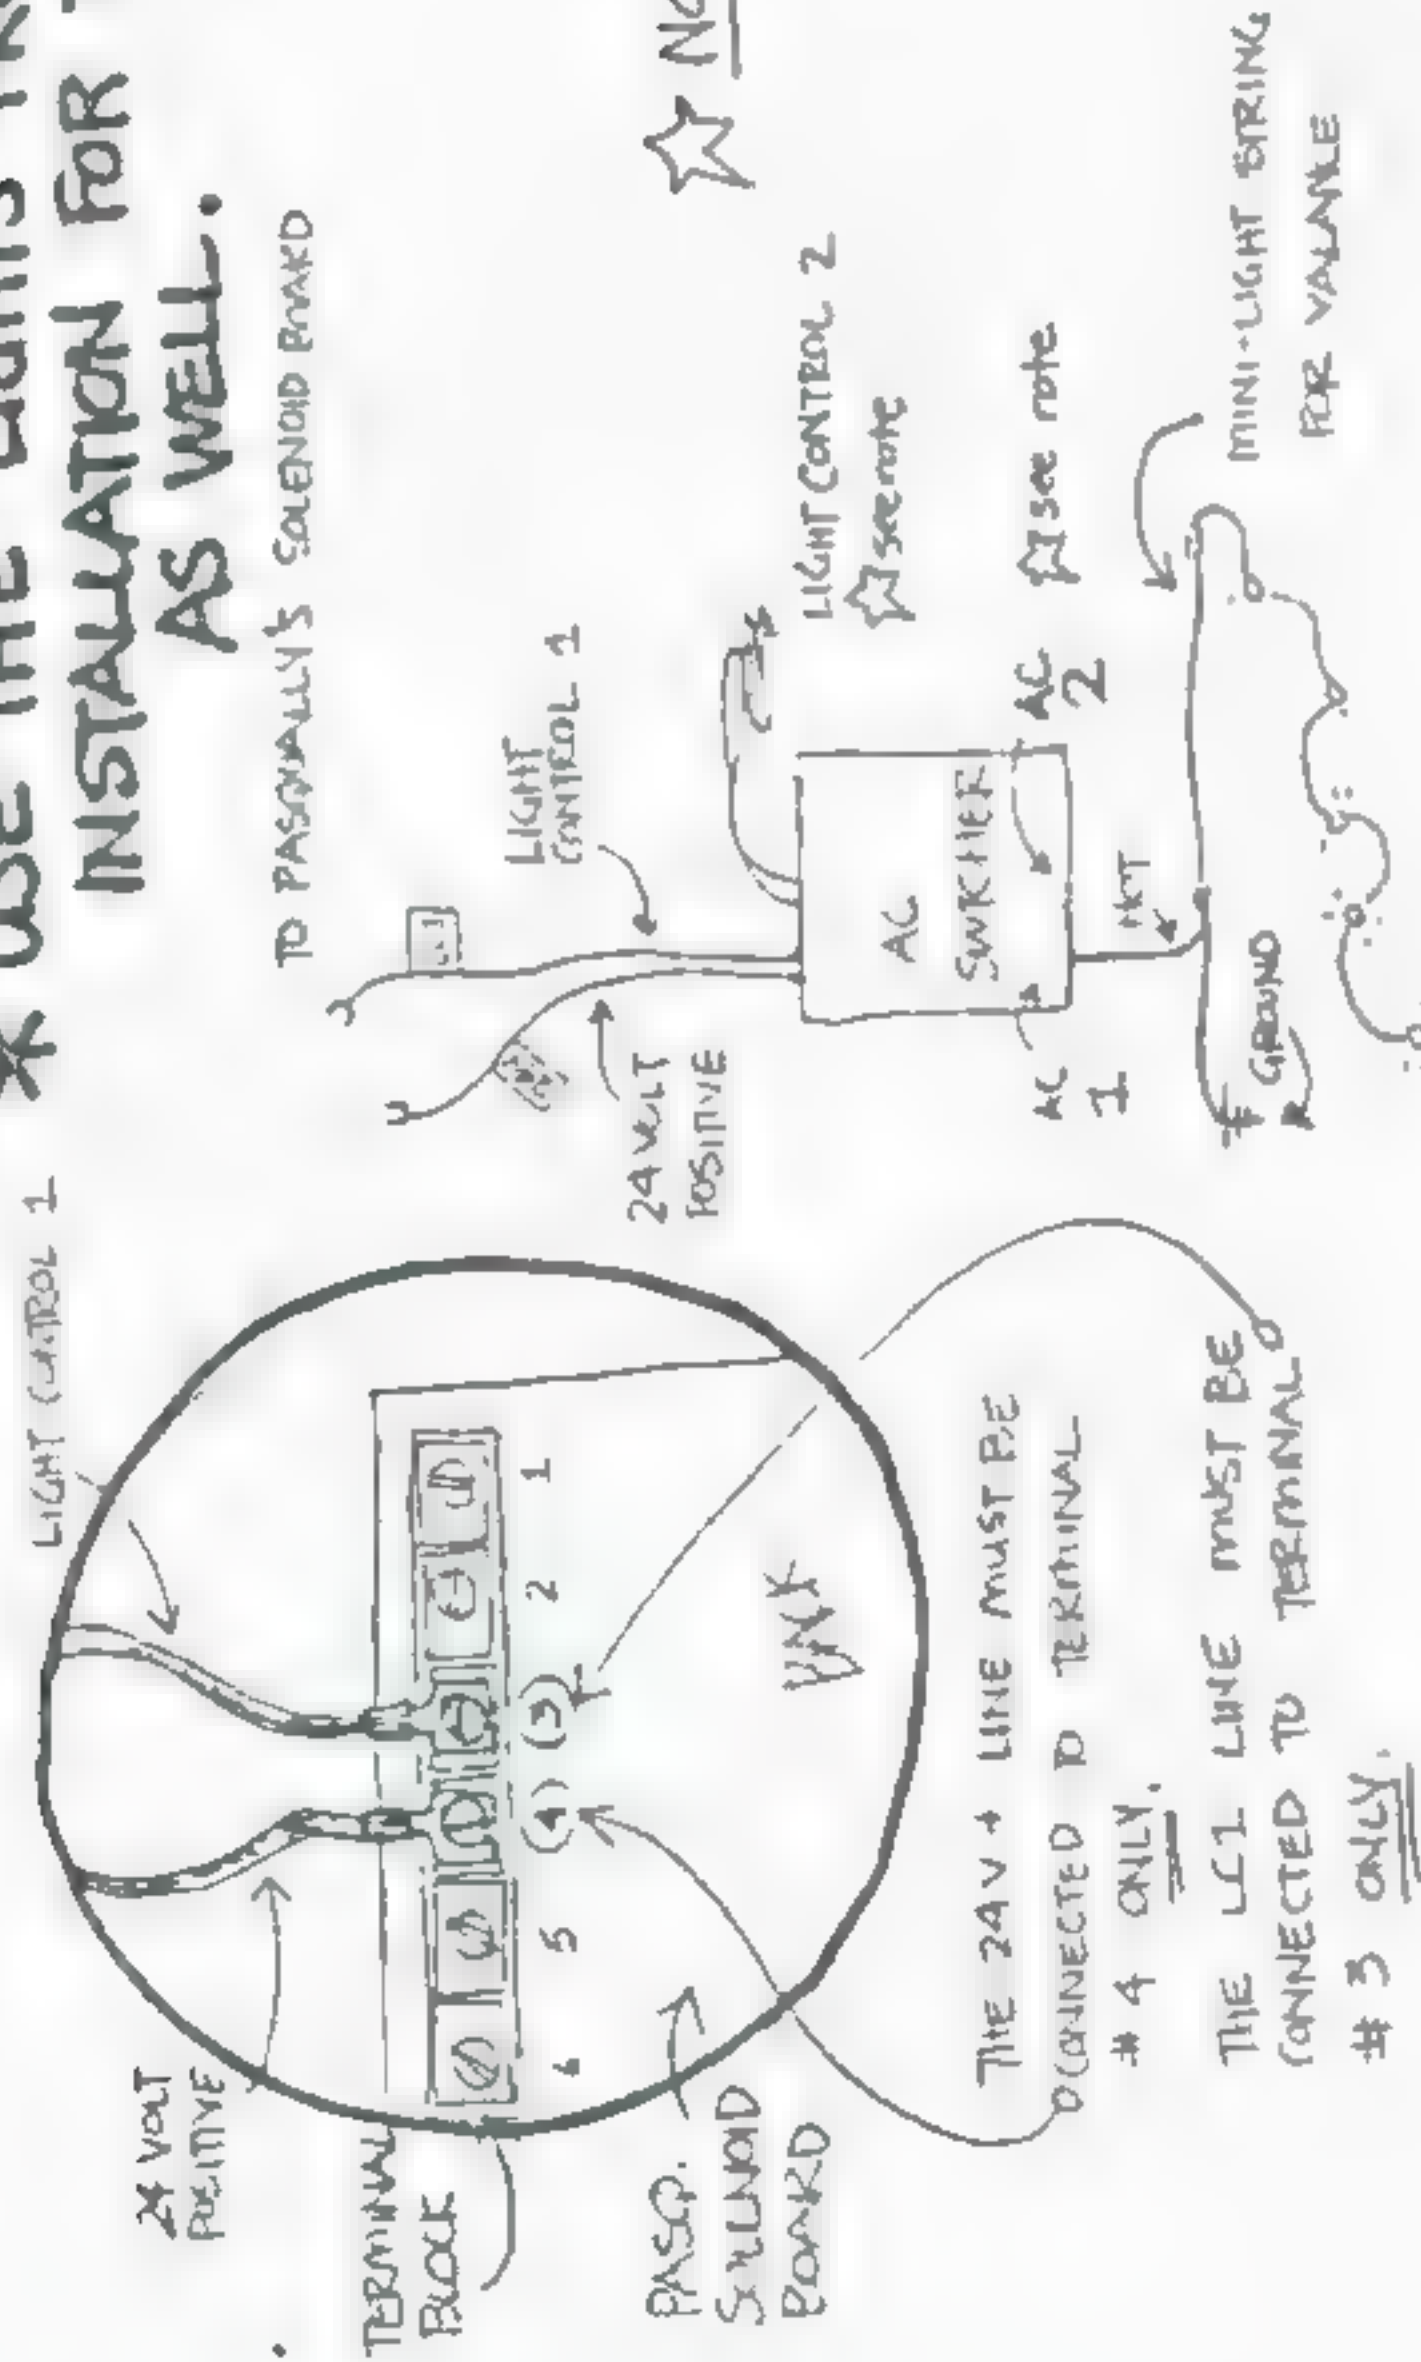 * USE THE LIGHTS
INSTALLATION FOR
AS WELL.
LIGHT CONTROL 1
24 VOLT
POSITIVE
TERMINAL
BLOCK
6 5 (4) (3) 2 1
PASQ.
SOLENOID
BOARD
THE 24V + LINE MUST BE
CONNECTED TO TERMINAL
# 4 ONLY.
THE LC1 LINE MUST BE
CONNECTED TO TERMINAL
# 3 ONLY.
TO PASQUALLY'S SOLENOID BOARD
LIGHT
CONTROL 1
24 VOLT
POSITIVE
LIGHT CONTROL 2
☆ see note
AC
SWITCHER
AC
1
AC
2
☆ see note
HOT
GROUND
MINI-LIGHT STRING
FOR VALANCE
☆